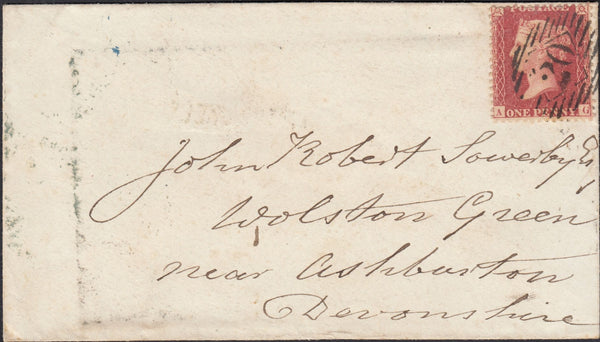 POSTAGE
20
A ONE PENNY G
John Robert Sowerby Esq
Wolston Green
near Ashburton
Devonshire